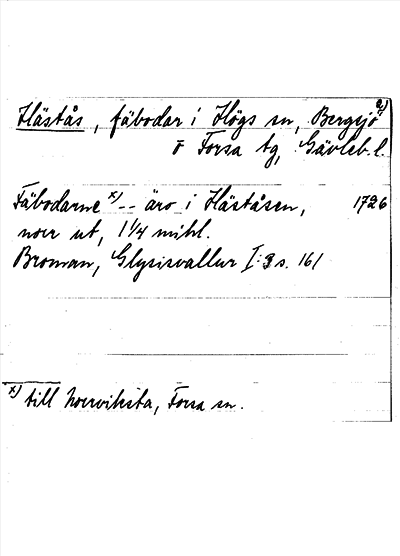 Hästås, fäbodar i Högs sn, Bergsjö 2)
o Forsa tg, Gävleb. l.
Fäbodarne x) -- äro i Häståsen, 1726
norr ut, 1 1/4 mihl.
Broman, Glysisvallur I:3 s. 161
x) till Norrviksta, Forsa sn.